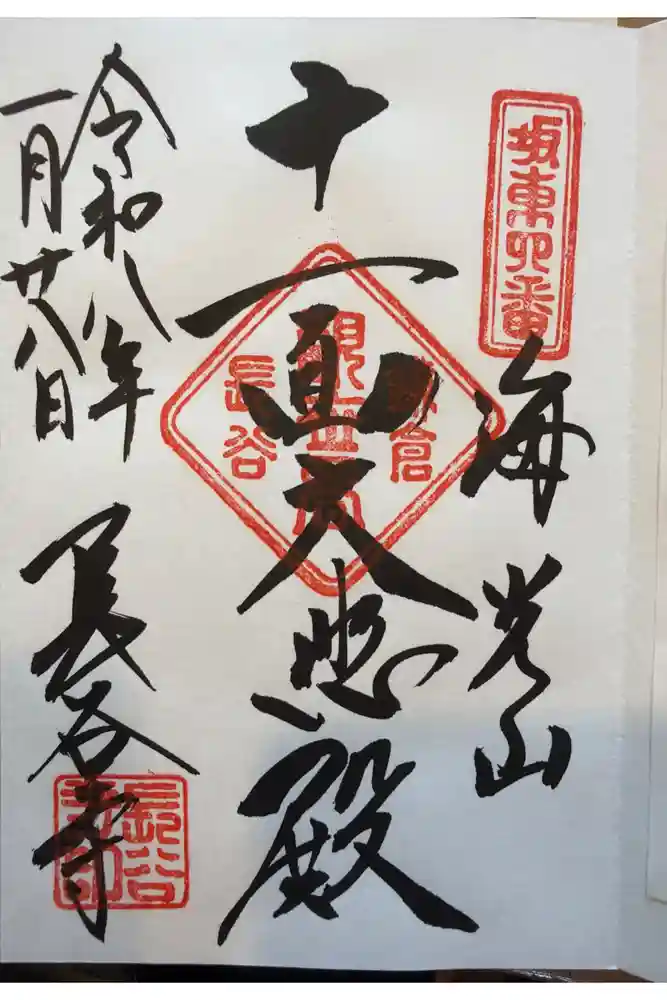 坂東四番
海光山
十一面大悲殿
鎌倉
長谷
令和八年
一月廿八日
長谷寺
長谷
寺印